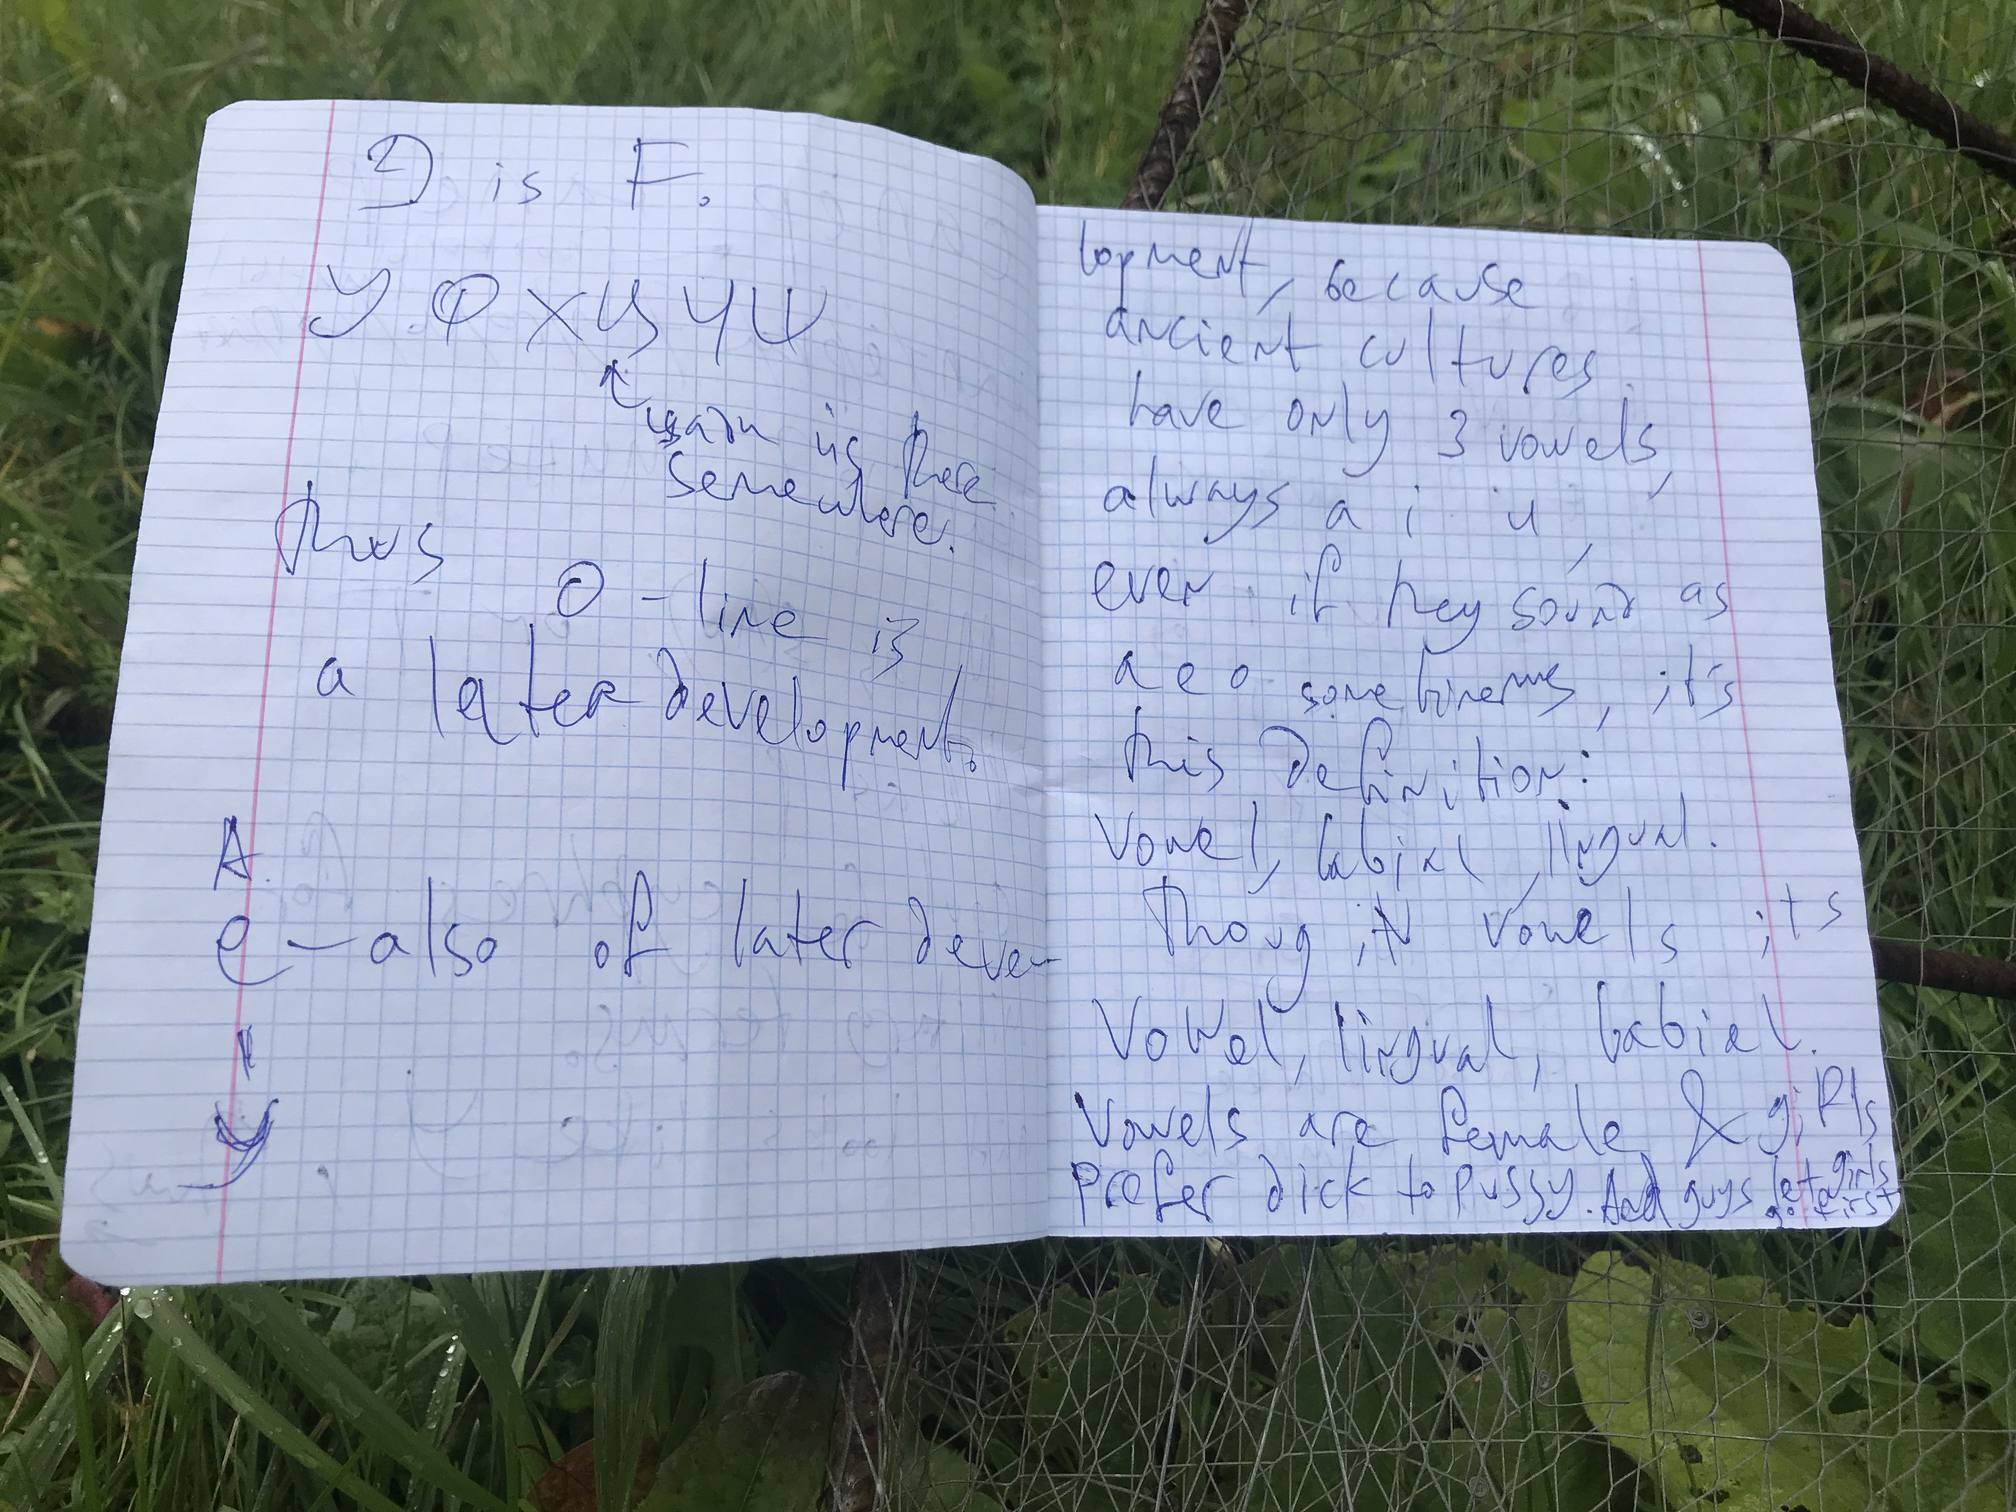 is F.
У Ф Х Ц Ч Ψ
is there
somewhere.
thus
O - line is
a later development.
A
e - also of later deve-
и
У
lopment, because
ancient cultures
have only 3 vowels,
always a i u,
even if they sound as
a e o sometimems, it's
this definition:
Vowel, labial, lingual.
Thoug in vowels its
Vowel, lingual, labial.
Vowels are female & girls
prefer dick to pussy. And guys let girls
go first